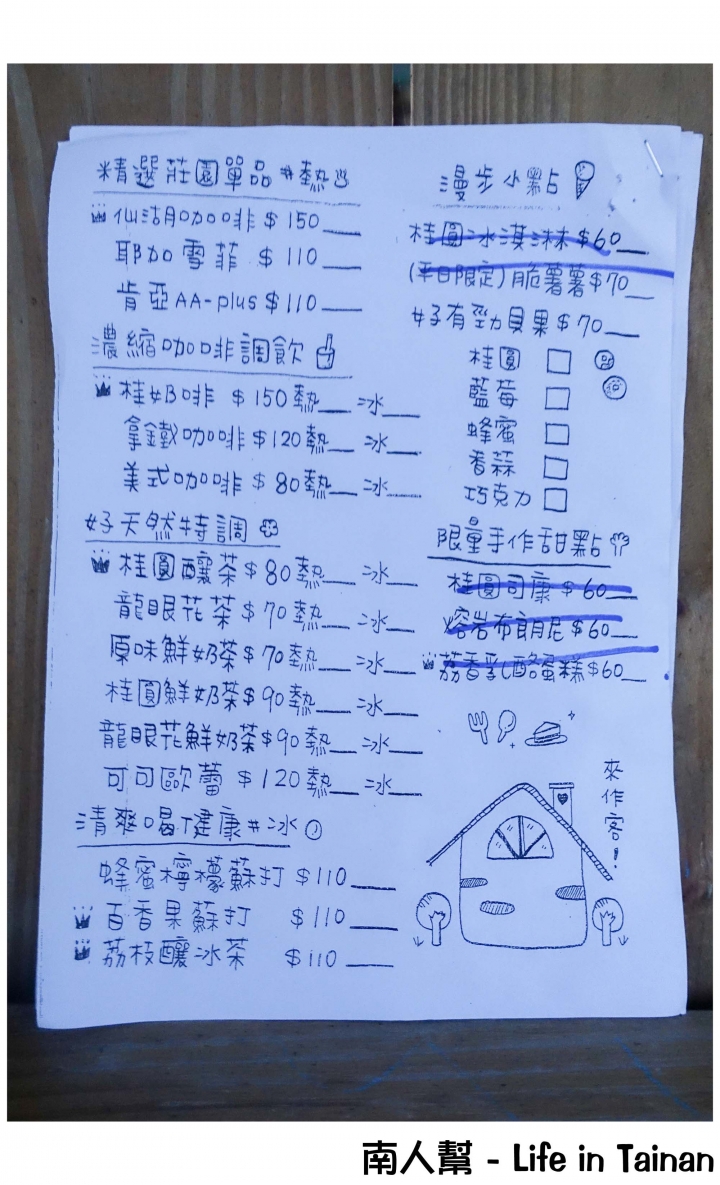 精選莊園單品 #熱
仙湖咖啡 $150
耶加雪菲 $110
肯亞AA-plus $110
濃縮咖啡調飲
桂奶啡 $150 熱__ 冰__
拿鐵咖啡 $120 熱__ 冰__
美式咖啡 $80 熱__ 冰__
好天然特調
桂圓釀茶 $80 熱__ 冰__
龍眼花茶 $70 熱__ 冰__
原味鮮奶茶 $70 熱__ 冰__
桂圓鮮奶茶 $90 熱__ 冰__
龍眼花鮮奶茶 $90 熱__ 冰__
可可歐蕾 $120 熱__ 冰__
清爽喝健康 #冰
蜂蜜檸檬蘇打 $110
百香果蘇打 $110
荔枝釀冰茶 $110
漫步小點
桂圓冰淇淋 $60
(平日限定)脆薯薯 $70
好有勁貝果 $70
桂圓 □
藍莓 □
蜂蜜 □
香蒜 □
巧克力 □
限量手作甜點
桂圓司康 $60
熔岩布朗尼 $60
荔香乳酪蛋糕 $60
來作客!
南人幫 - Life in Tainan